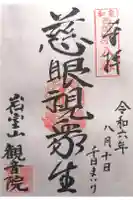 奉拝
令和六年
八月十日
千日まいり
慈眼視衆生
岩室山
観音院